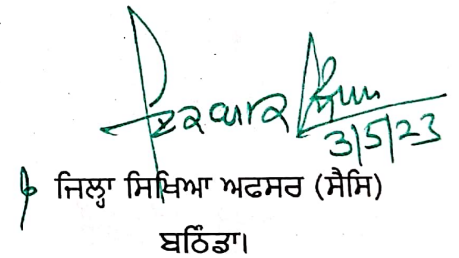 3/5/23
ਜਿਲ੍ਹਾ ਸਿਖਿਆ ਅਫਸਰ (ਸੈਸਿ)
ਬਠਿੰਡਾ।